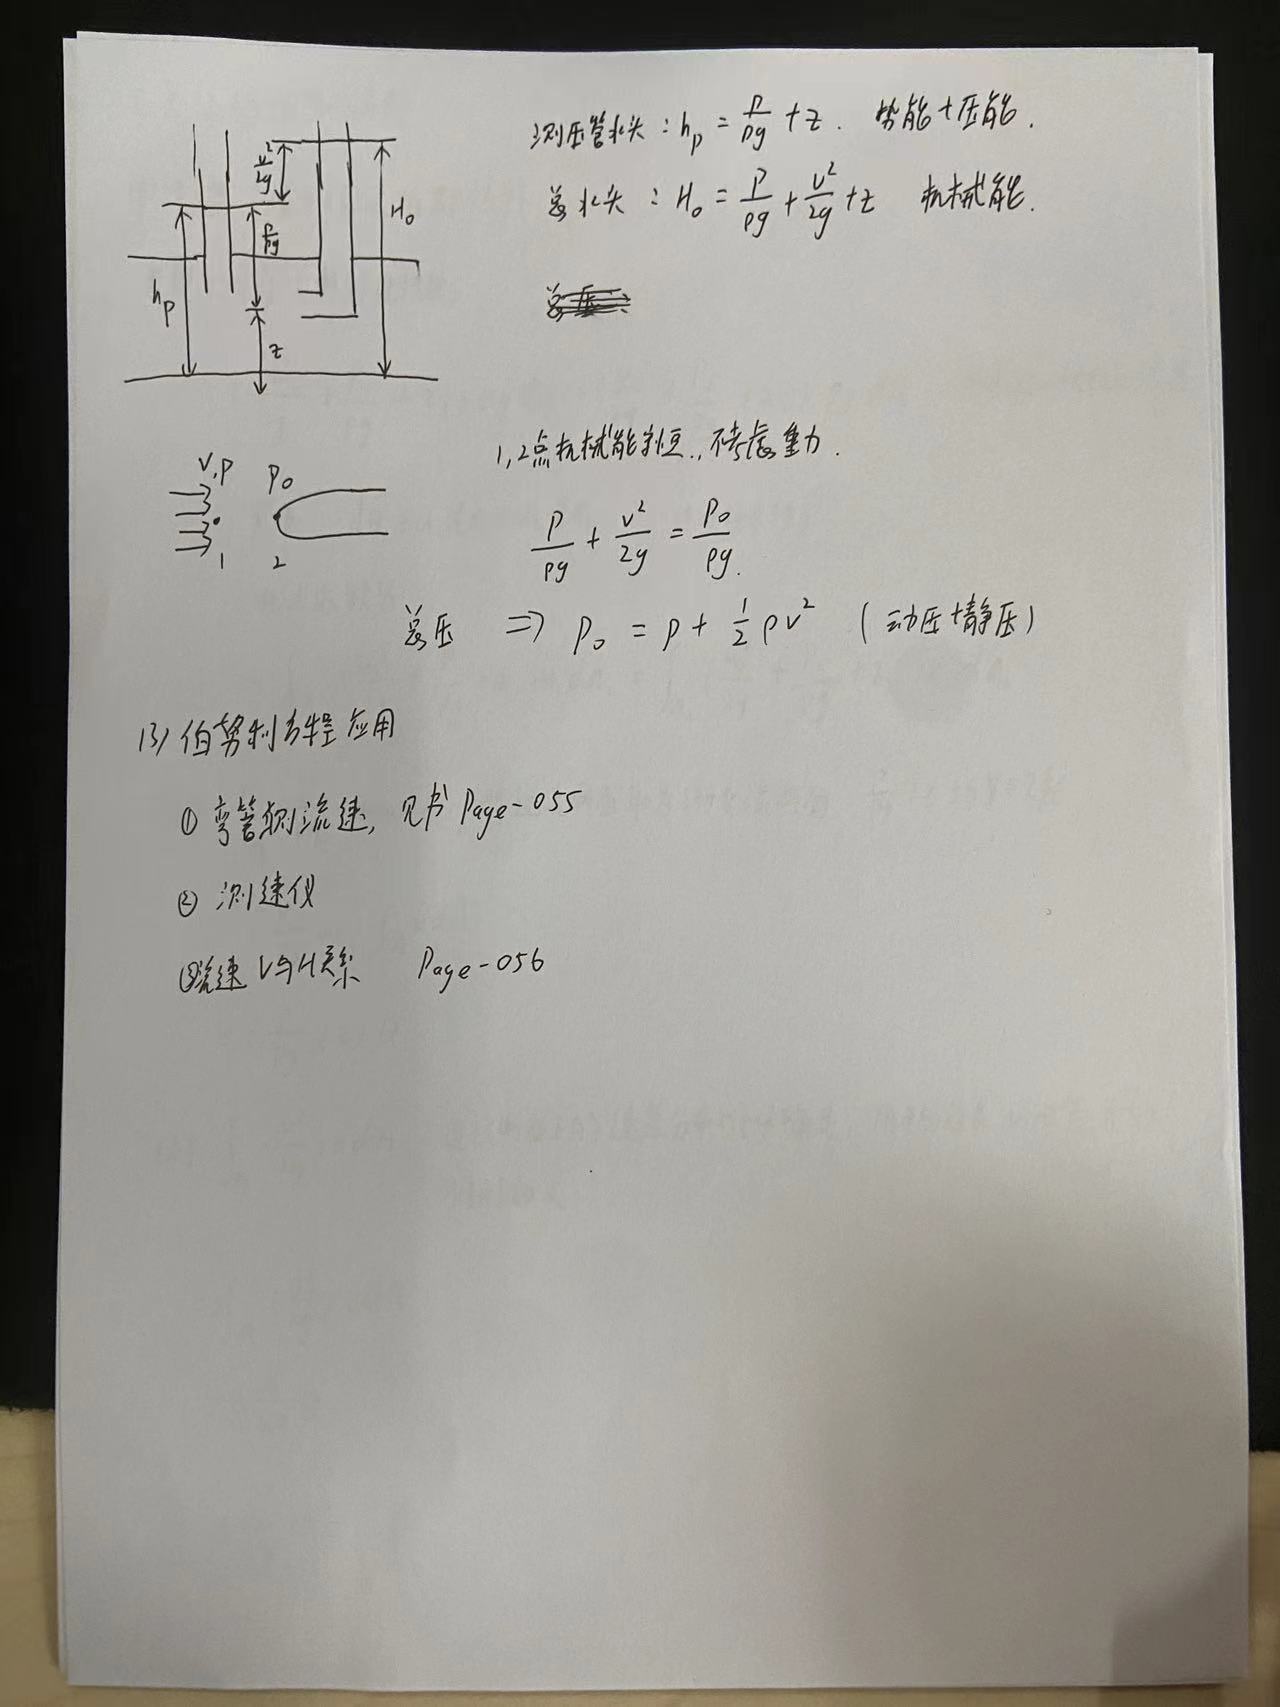 测压管水头：hp = p/ρg + z. 势能+压能.
总水头：H₀ = p/ρg + v²/2g + z 机械能.
v²/2g
p/ρg
H₀
hp
z
1,2点机械能守恒., 不考虑重力.
v,p p₀
1 2
p/ρg + v²/2g = p₀/ρg.
总压 ⇒ p₀ = p + 1/2 ρv² (动压+静压)
(3) 伯努利方程应用
① 弯管测流速, 见书 Page-055
② 测速仪
③流速 V与H关系 Page-056